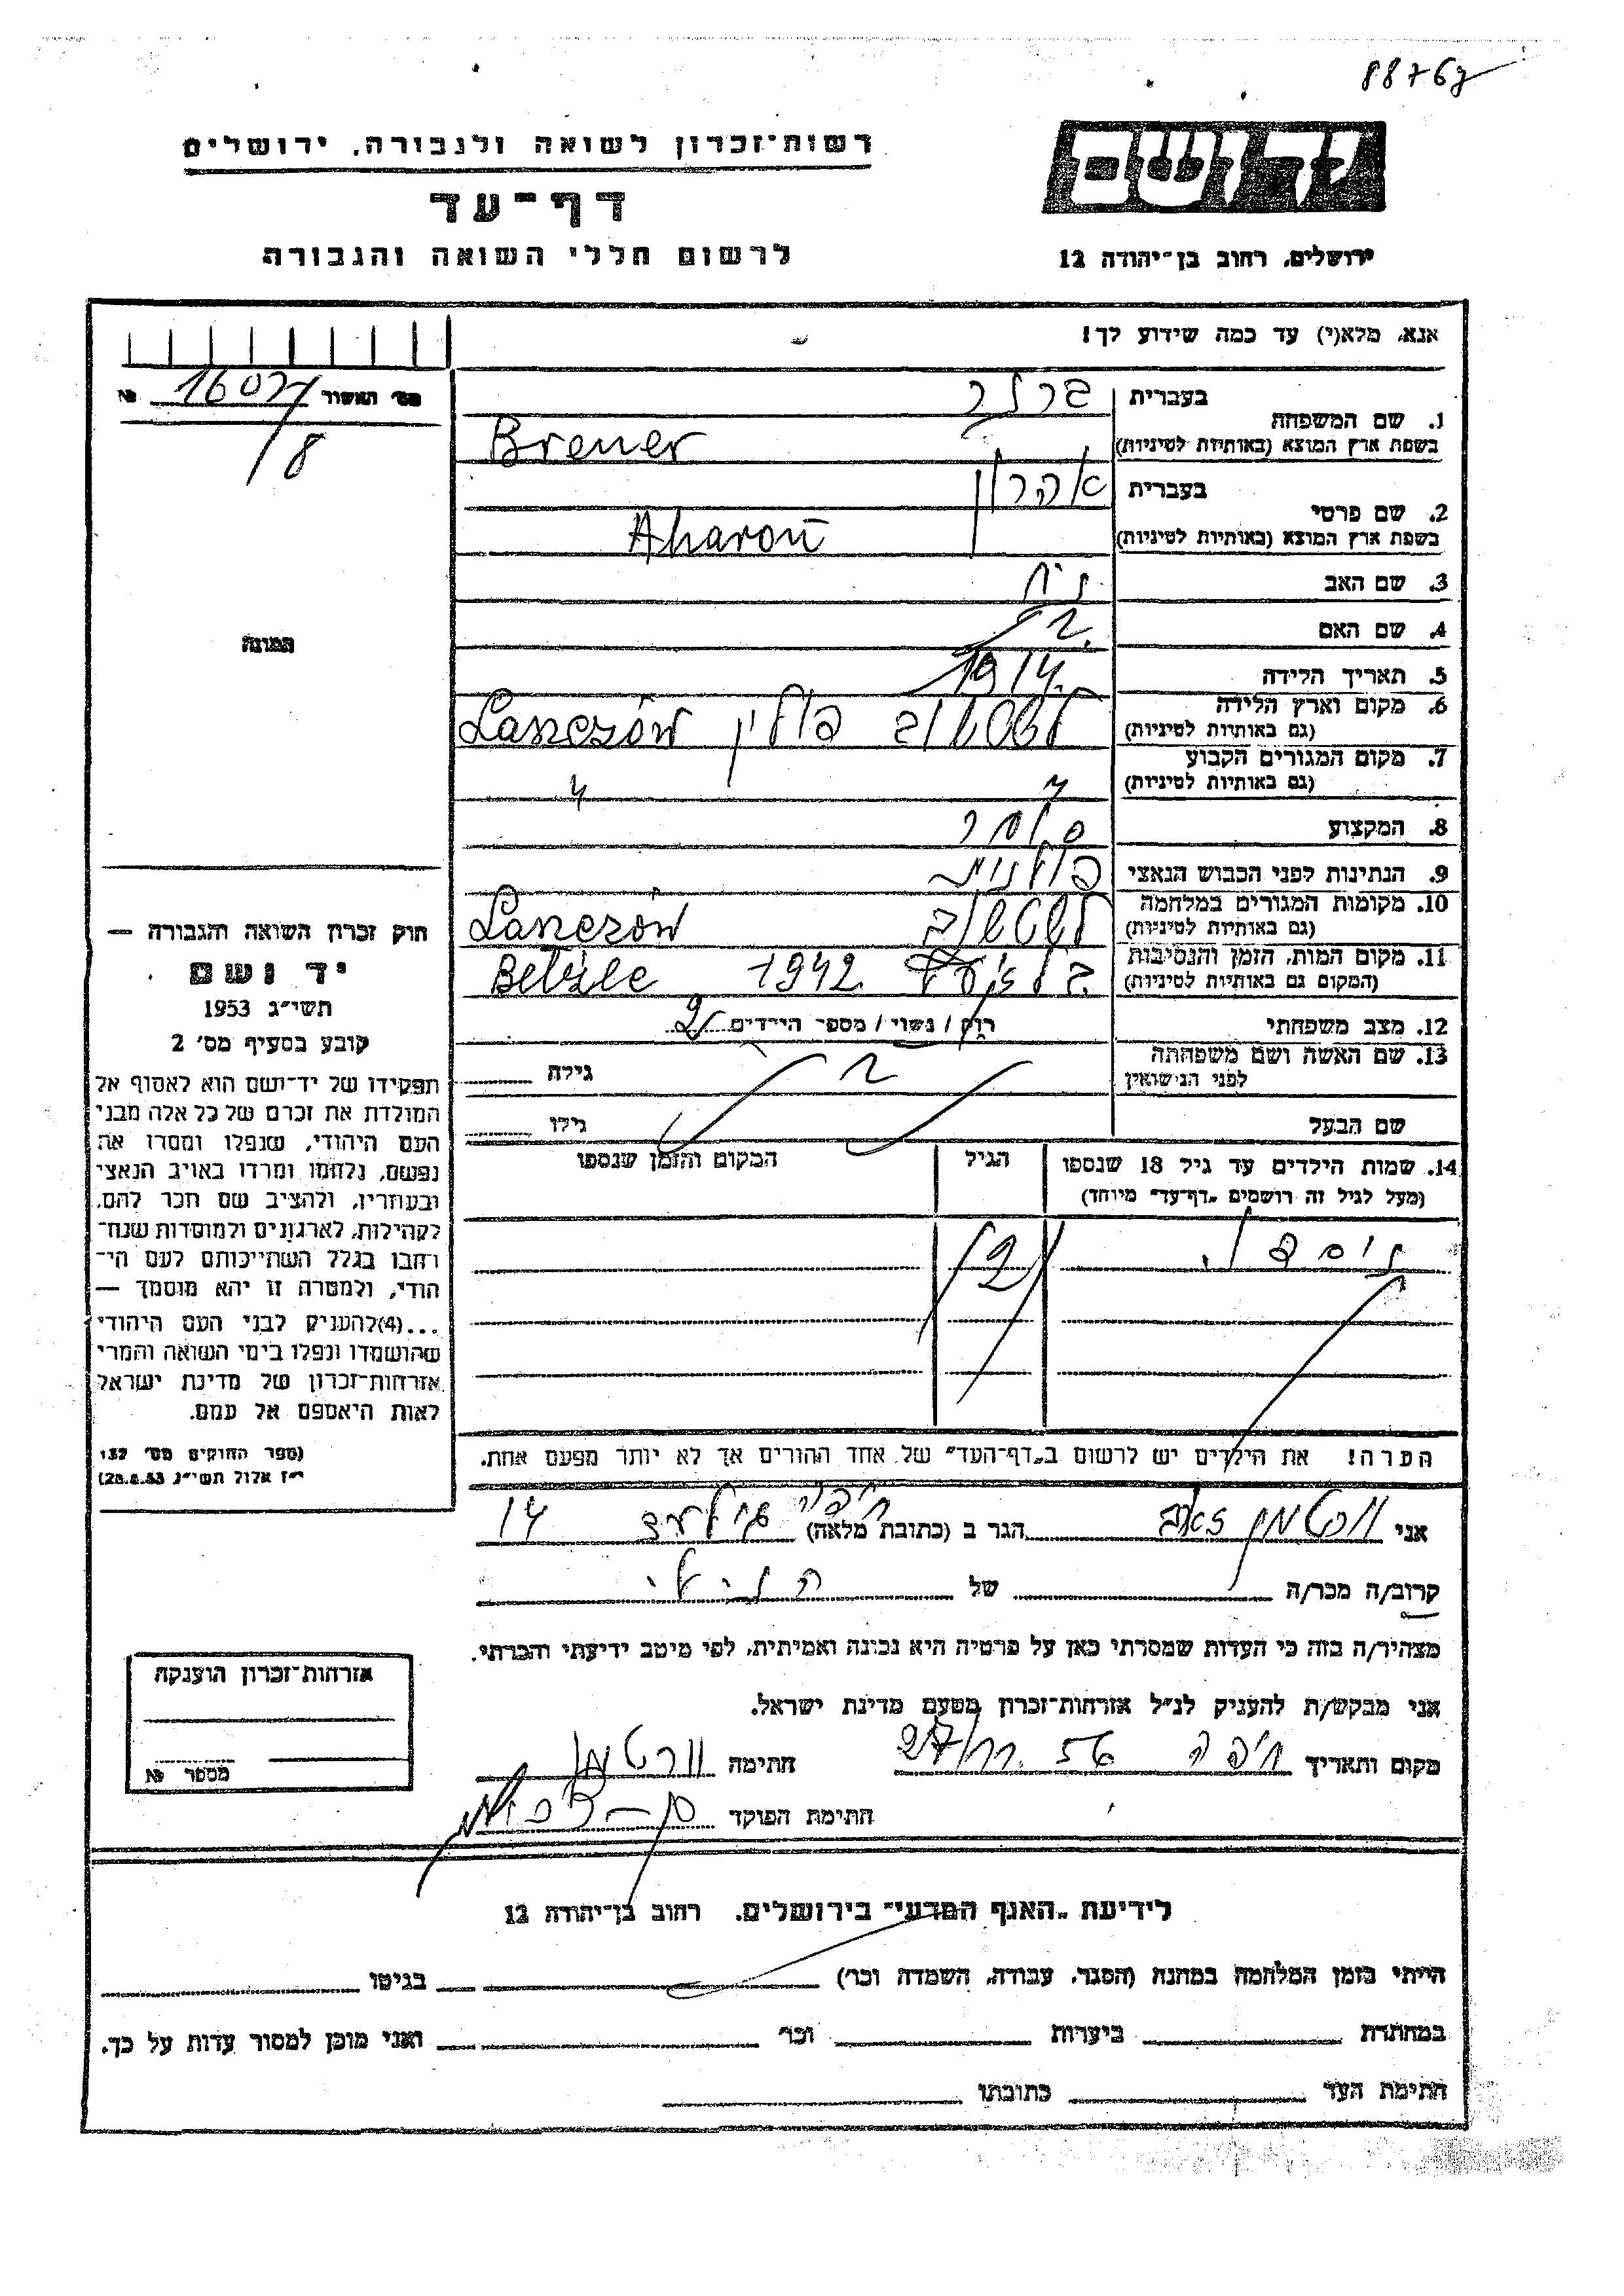 88767
רשות־זכרון לשואה ולגבורה, ירושלים
דף־עד
לרשום חללי השואה והגבורה
יד ושם
ירושלים, רחוב בן־יהודה 12
אנא, מלא(י) עד כמה שידוע לך!
מס׳ האשור № 16027
/8
התמונה
1. שם המשפחה בעברית ברנר
בשפת ארץ המוצא (באותיות לטיניות) Brener
2. שם פרטי בעברית אהרון
בשפת ארץ המוצא (באותיות לטיניות) Aharon
3. שם האב
4. שם האם
5. תאריך הלידה 1914.
6. מקום וארץ הלידה
(גם באותיות לטיניות) פולין Laszczów
7. מקום המגורים הקבוע
(גם באותיות לטיניות) " "
8. המקצוע סוחר
9. הנתינות לפני הכבוש הנאצי פולנית
10. מקומות המגורים במלחמה
(גם באותיות לטיניות) Laszczow
11. מקום המות, הזמן והנסיבות
(המקום גם באותיות לטיניות) 1942. Belżec
12. מצב משפחתי רוק / נשוי / מספר הילדים 2
13. שם האשה ושם משפחתה
לפני הנישואין גילה
שם הבעל גילו
14. שמות הילדים עד גיל 18 שנספו הגיל המקום והזמן שנספו
(מעל לגיל זה רושמים „דף־עד״ מיוחד)
2
הערה! את הילדים יש לרשום ב„דף־העד״ של אחד ההורים אך לא יותר מפעם אחת.
חוק זכרון השואה והגבורה —
יד ושם
תשי״ג 1953
קובע בסעיף מס׳ 2
תפקידו של יד־ושם הוא לאסוף אל
המולדת את זכרם של כל אלה מבני
העם היהודי, שנפלו ומסרו את
נפשם, נלחמו ומרדו באויב הנאצי
ובעוזריו, ולהציב שם וזכר להם,
לקהילות, לארגונים ולמוסדות שנח־
רבו בגלל השתייכותם לעם הי־
הודי, ולמטרה זו יהא מוסמך —
...(4) להעניק לבני העם היהודי
שהושמדו ונפלו בימי השואה והמרי
אזרחות־זכרון של מדינת ישראל
לאות היאספם אל עמם.
(ספר החוקים מס׳ 132
י״ז אלול תשי״ג 28.8.53)
אני וורטמן זאב הגר ב (כתובת מלאה) חיפה 14
קרוב/ה מכר/ה של
מצהיר/ה בזה כי העדות שמסרתי כאן על פרטיה היא נכונה ואמיתית, לפי מיטב ידיעתי והכרתי.
אני מבקש/ת להעניק לנ״ל אזרחות־זכרון מטעם מדינת ישראל.
מקום ותאריך חיפה 27/11 56 חתימה וורטמן
חתימת הפוקד
אזרחות־זכרון הוענקה
מספר №
לידיעת „האגף המדעי״ בירושלים, רחוב בן־יהודה 12
הייתי בזמן המלחמה במחנה (הסגר, עבודה, השמדה וכו׳) בגיטו
במחתרת ביערות וכו׳ ואני מוכן למסור עדות על כך.
חתימת העד כתובתו